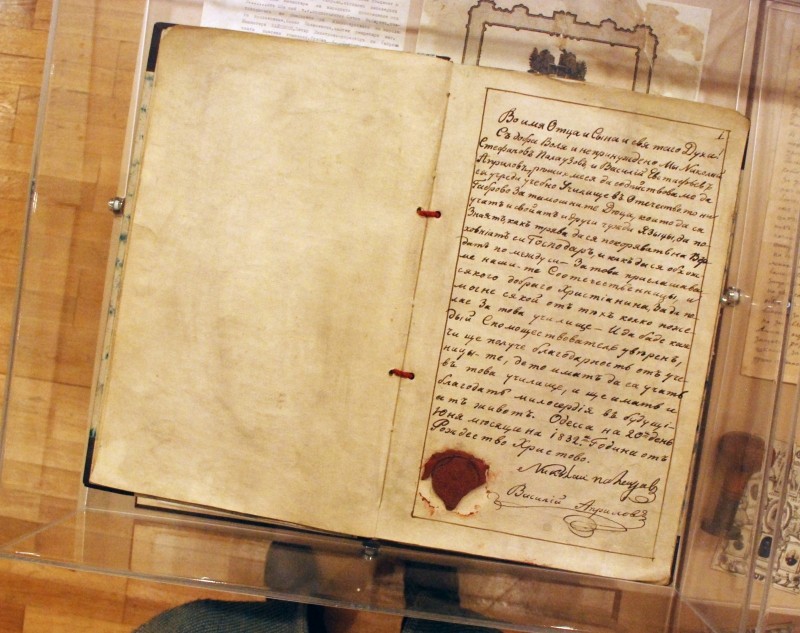 1.
Во имя Отца и Сына и свя таго Духа!
Съ добра Воля и непринуждено Мы Николай
Стефановъ Палаузовъ и Василій Евстафіевъ
Априловъ, рѣшихмеся да содѣйствоваме да
са учреди учебно Училище въ Отечество то ни
Габрово За тамошните Дѣца, кои то да са
учатъ и свойатъ и други чужди Языцы, да по-
Знаятъ, какъ трява да ся покоряватъ на Вер-
ховніатъ си Господаръ, и какъ да ся обхож-
датъ по между си — За това приглашава-
ме наши-те Соотечественницы, и
сякого добраго Христіанина, За да по-
могне сякой отъ тяхъ колко поже-
лае За това училище — И да баде каж-
дый Спомоществователь увѣренъ,
чи ще получе благодарность отъ уче-
ницы-те, дето иматъ да са учатъ
въ това училище, и ще имать и
благодать милосердія въ будущі-
атъ животъ. Одесса на 20й день
Юня мѣсяца на 1832на Година отъ
Рождество Христово.
Николай Палаузовъ
Василій Априловъ